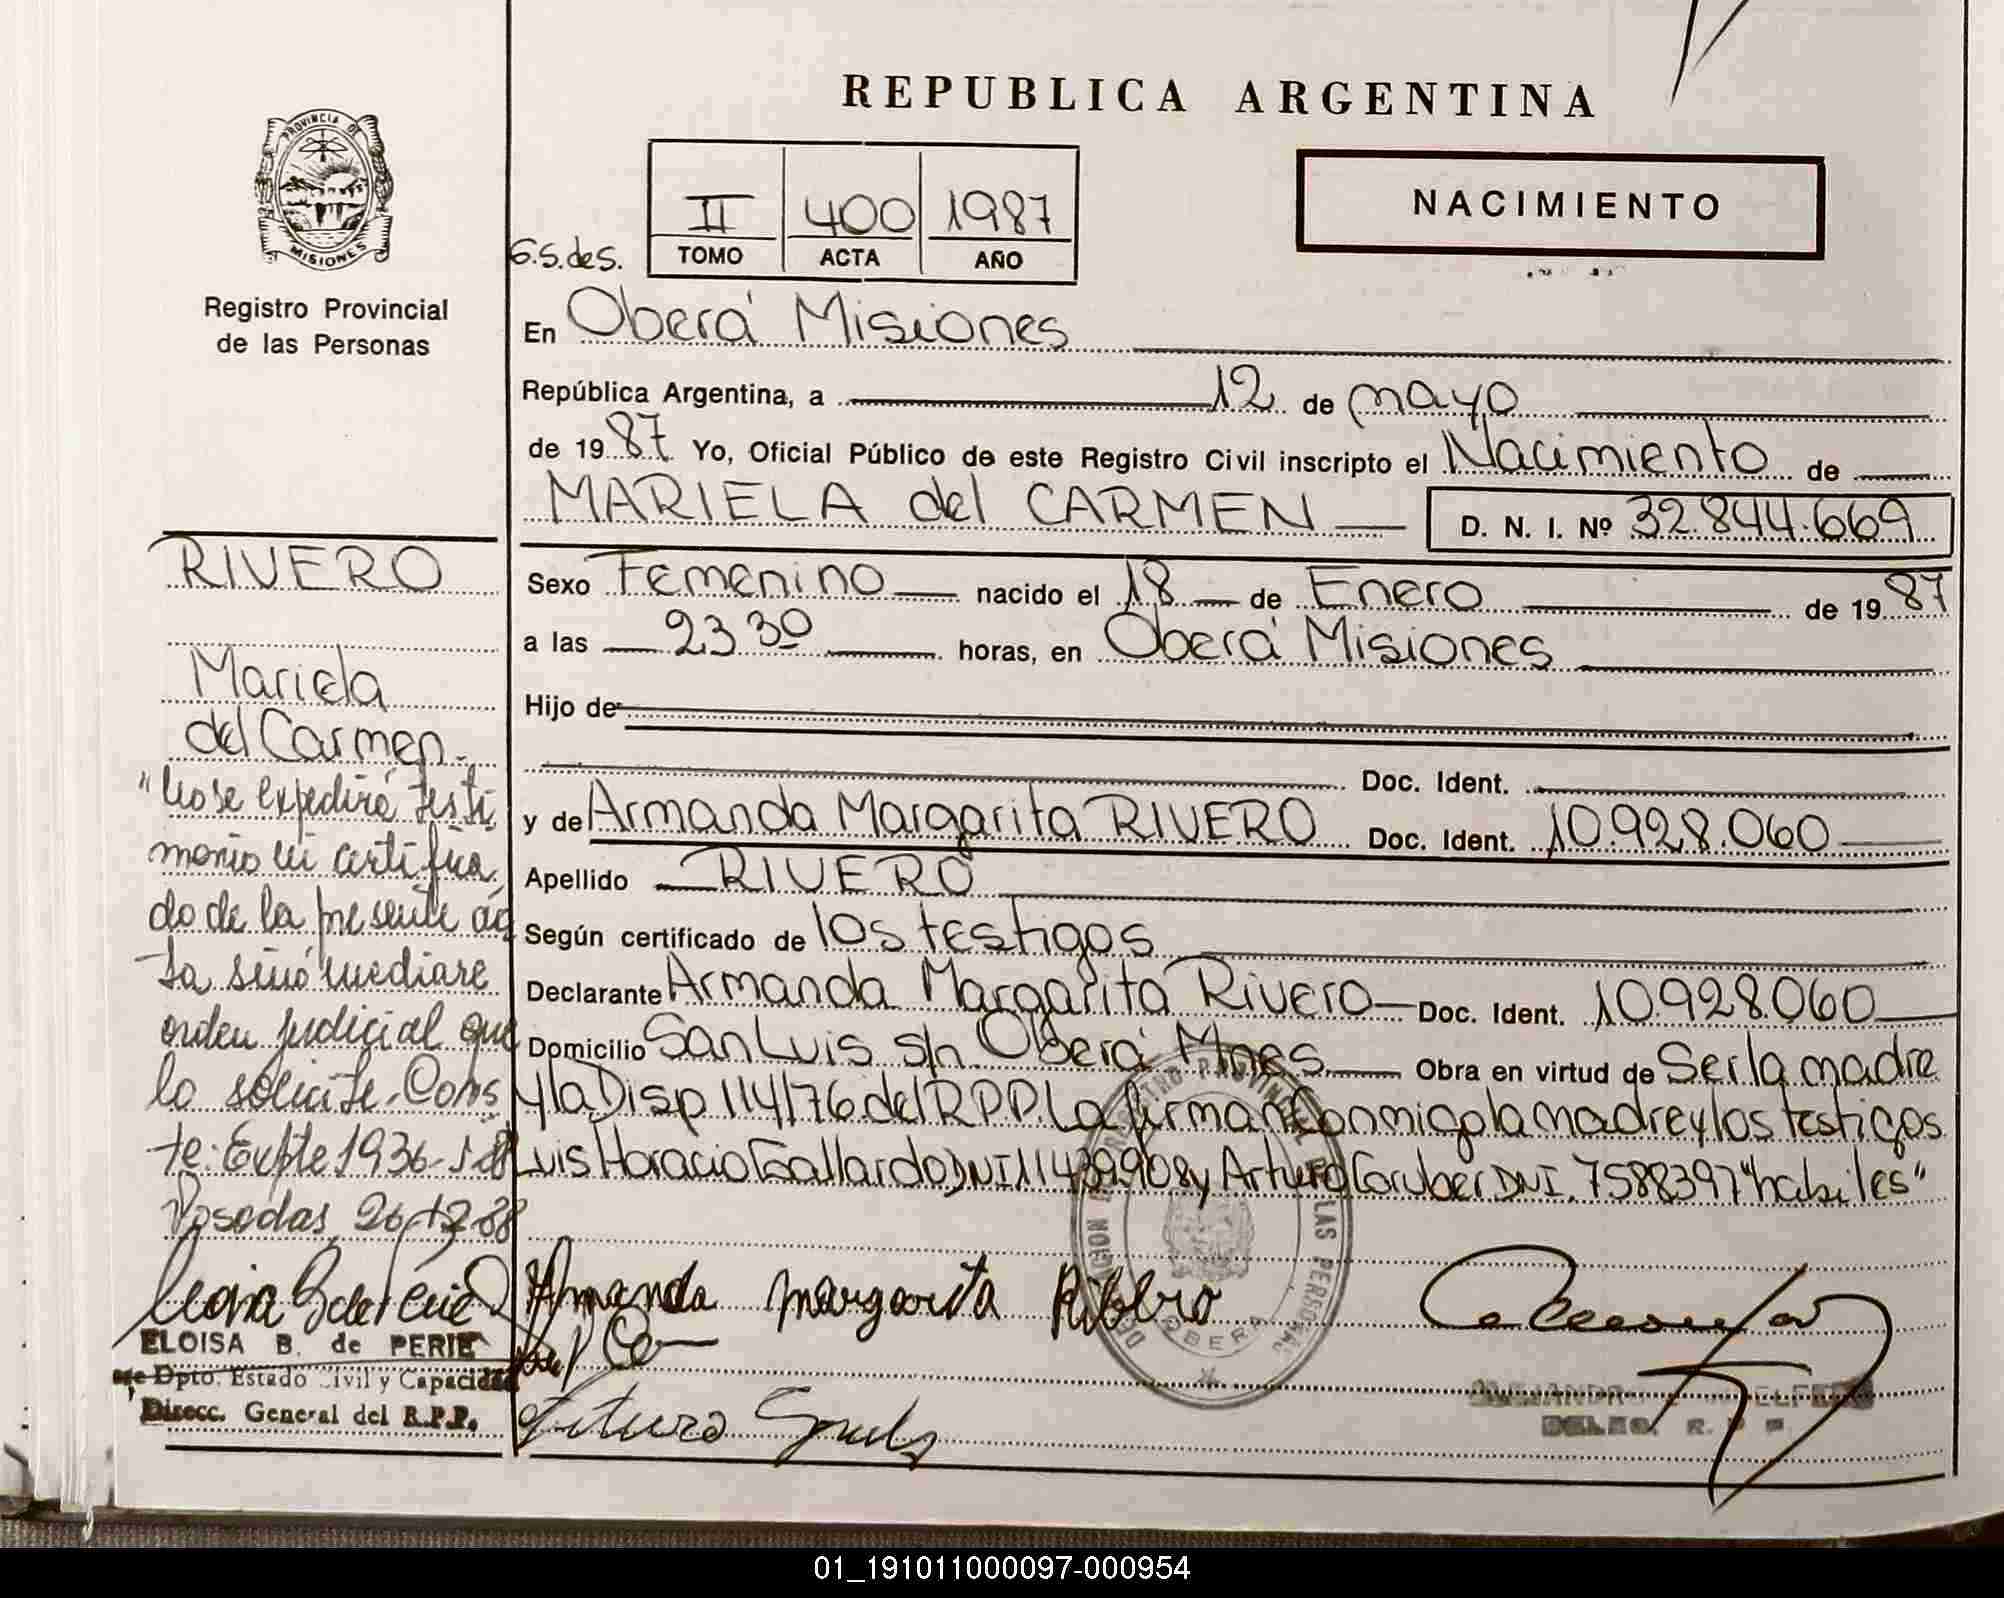 REPUBLICA ARGENTINA
PROVINCIA DE
MISIONES
Registro Provincial
de las Personas
NACIMIENTO
II 400 1987
TOMO ACTA AÑO
G.S.des.
En Oberá Misiones
República Argentina, a 12 de mayo
de 1987 Yo, Oficial Público de este Registro Civil inscripto el Nacimiento de
MARIELA del CARMEN D. N. I. Nº 32.844.669
Sexo Femenino nacido el 18 de Enero de 1987
a las 23 30 horas, en Oberá Misiones
Hijo de
Doc. Ident.
y de Armanda Margarita RIVERO Doc. Ident. 10.928.060
Apellido RIVERO
Según certificado de los testigos
Declarante Armanda Margarita Rivero Doc. Ident. 10.928.060
Domicilio San Luis s/n. Oberá Mnes Obra en virtud de Ser la madre
y la Disp 114/76 del R.P.P. La firman Conmigo la madre y los testigos
Luis Horacio Gallardo DNI 11439.908 y Arturo Gruber DNI. 7588397 "habiles"
Armanda margarita Ribero
Arturo
OBERA
DELEG. R. P P
RIVERO
Mariela
del Carmen.-
"No se expedirá testi
monio ni certifica
do de la presente ac
ta sino mediare
orden judicial que
lo solicite. Cons
te: Expte 1936-
Posadas, 26-12-88
ELOISA B. de PERIE
Dpto. Estado Civil y Capacidad
Direcc. General del R.P.P.
01_191011000097-000954